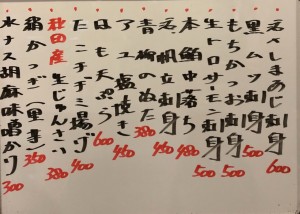 えべしまあじ刺 600
黒ムツ刺 500
もちかつお刺身 500
生トロサーモン刺身 500
本鮪中落ち 480
活帆立刺身 450
青柳のぬた 380
アユ塩焼き 450
はも天ぷら 600
たこチヂミ揚げ 400
秋田産生じゅんさい 380
絹かつぎ(里芋) 350
水ナス胡麻味噌かけ 300